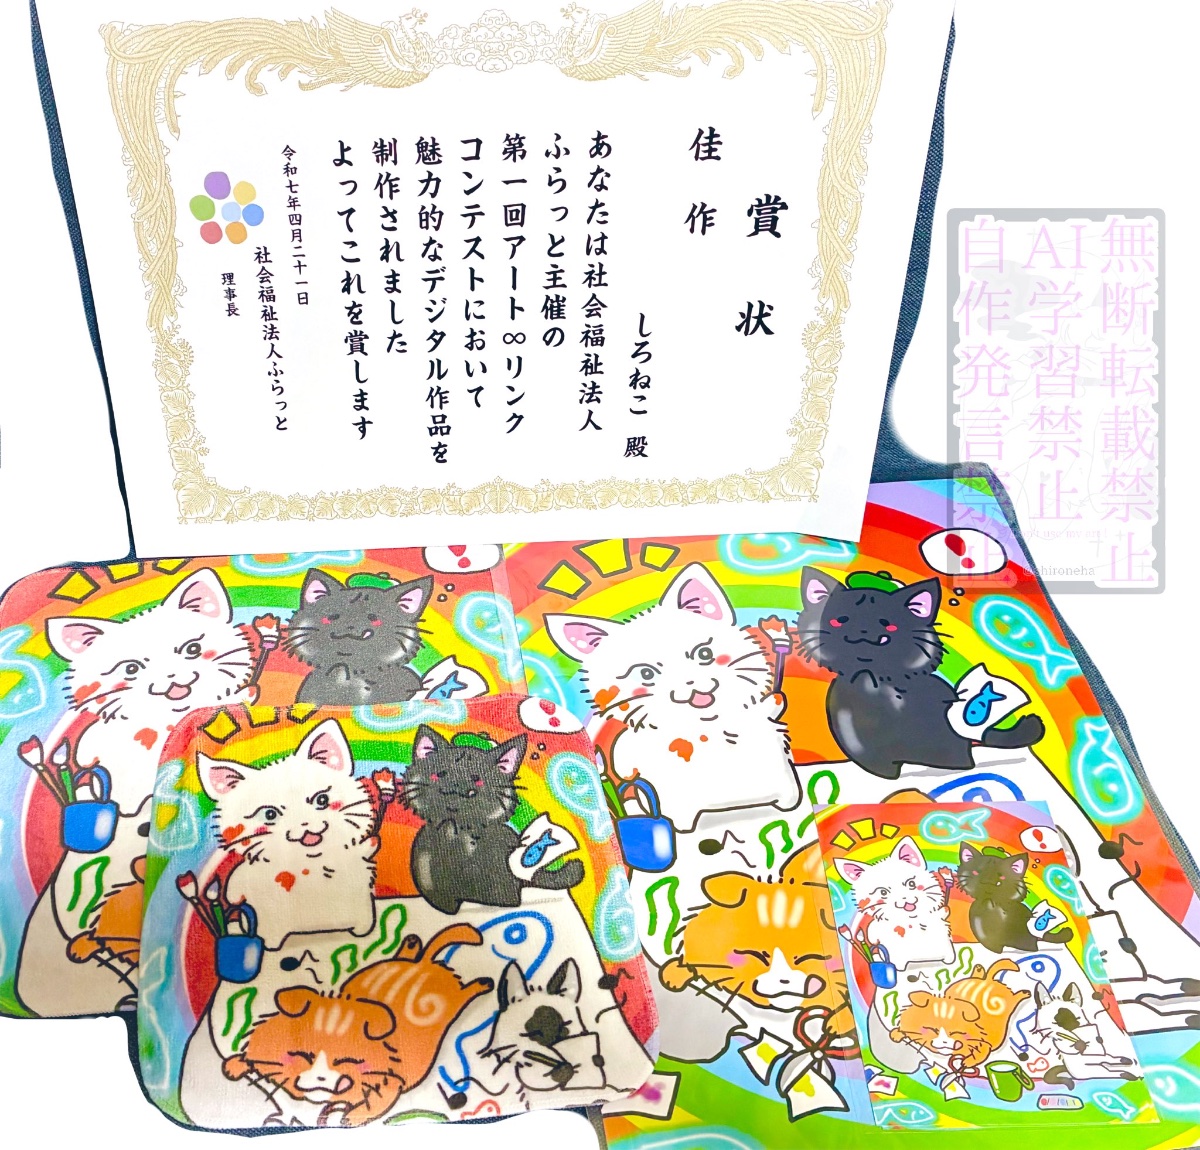 賞状
佳作
しろねこ 殿
あなたは社会福祉法人
ふらっと主催の
第一回アート∞リンク
コンテストにおいて
魅力的なデジタル作品を
制作されました
よってこれを賞します
令和七年四月二十一日
社会福祉法人ふらっと
理事長
無断転載禁止
AI学習禁止
自作発言禁止